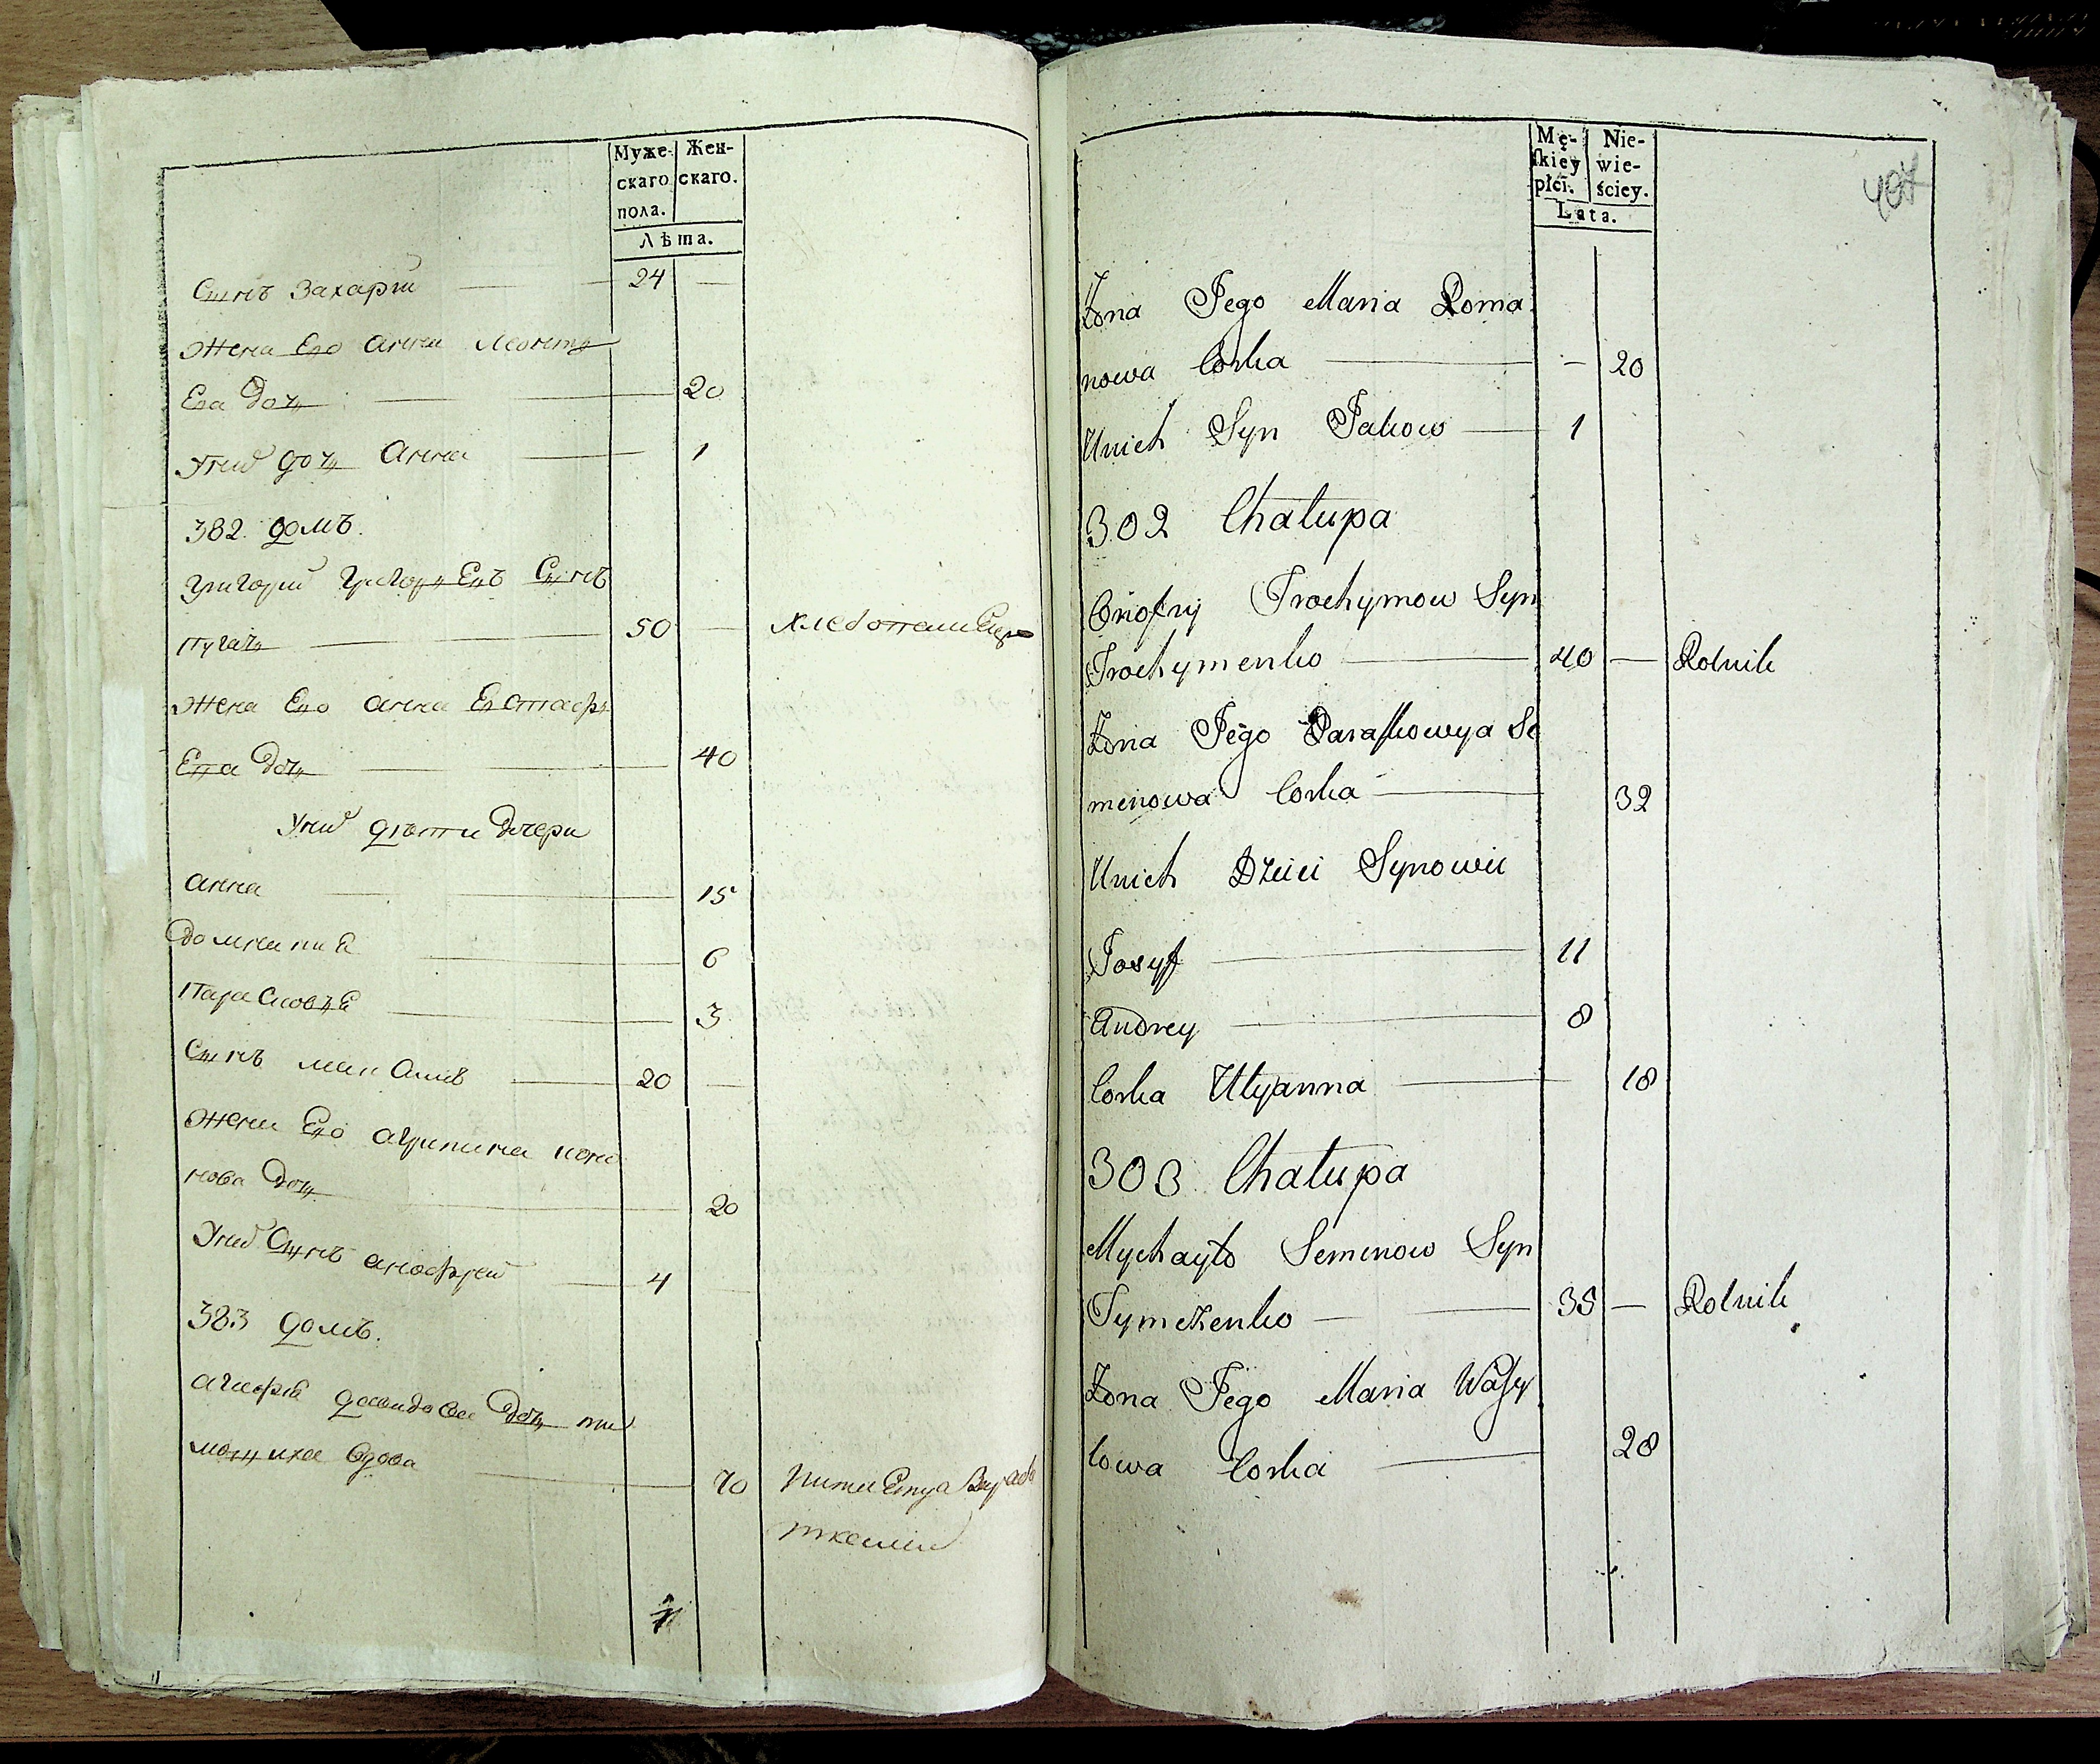 Муже-
скаго
пола.
Жен-
скаго.
Лѣта.
Сынъ Захарий 24
Жена Его Анна Леонть
Ева дочь 20
У них дочь Анна 1
382 домъ.
Григорий Григорьевъ Сынъ
Пугачь 50 — Хлебопашецъ
Жена Его Анна Евстафь
Ева дочь 40
У них дѣти дочери
Анна 15
Домникия 6
Парасковья 3
Сынъ Максимъ 20
Жена Его Агрипина Коно
нова дочь 20
У них Сынъ Анофрей 4
383 домъ.
Агафия Давидова дочь ти
вдова 70
Mę-
skiey
płci.
Nie-
wie-
ściey.
Lata.
407
Żona Jego Maria Roma
nowa Corka — 20
Unich Syn Jakow 1
302 Chałupa
Onofry Trochymow Syn
Trochymenko 40 — Rolnik
Żona Jego Paraskowya Se
menowa Corka 32
Unich Dzieci Synowie
Josyf 11
Andrey 8
Corka Ulyanna 18
303 Chałupa
Mychayło Semenow Syn
Tymczenko 35 — Rolnik
Żona Jego Maria Wasy
lowa Corka 28